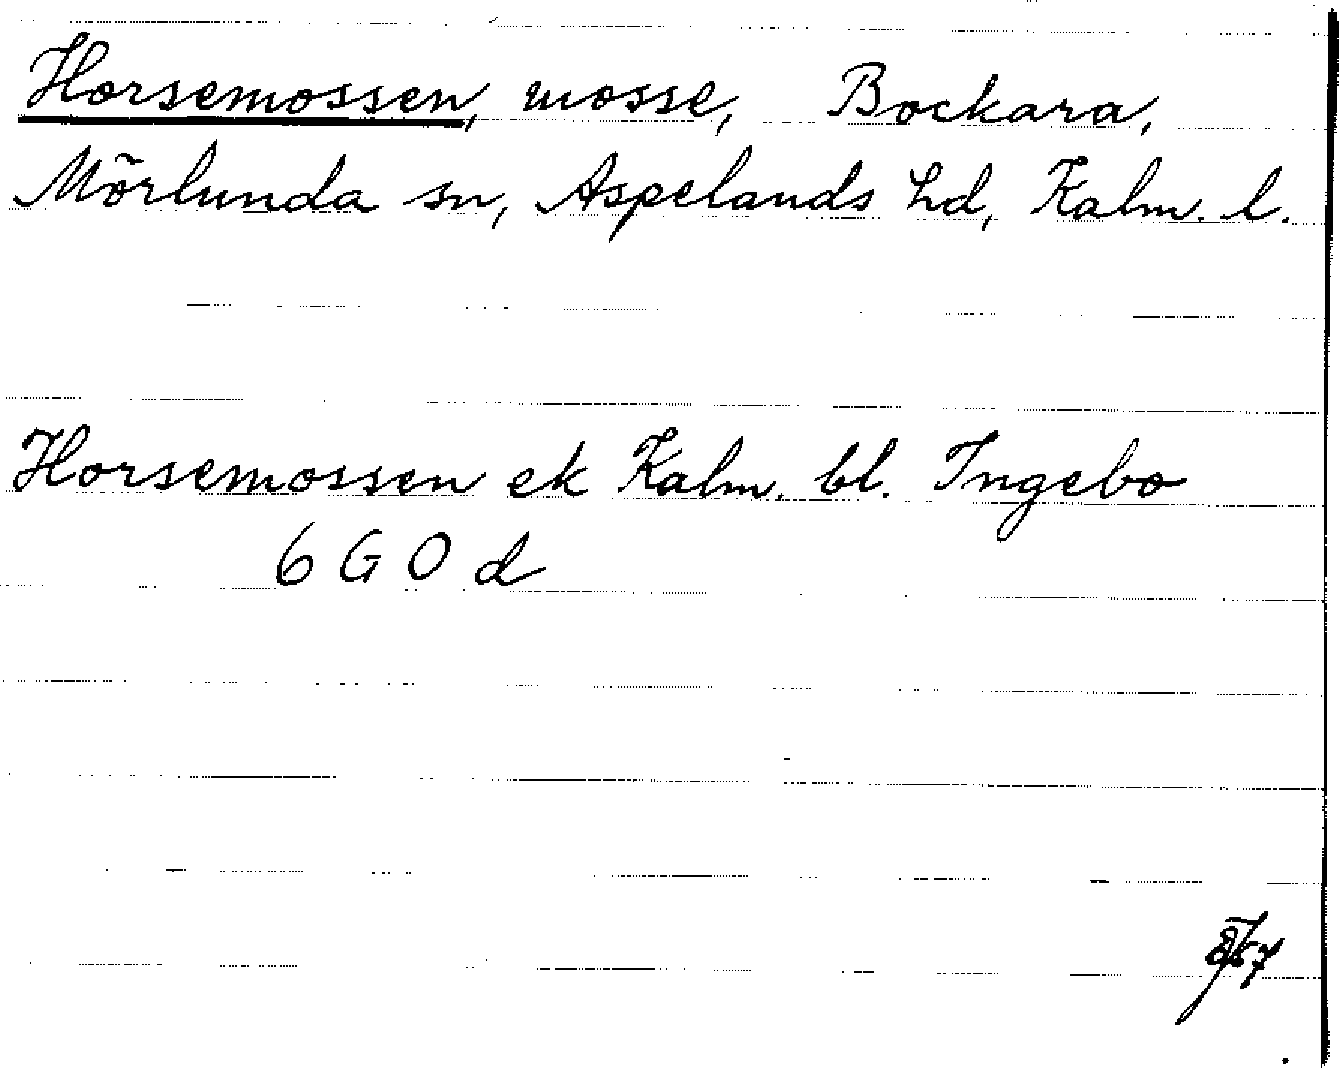 Horsemossen, mosse, Bockara,
Mörlunda sn, Aspelands hd, Kalm. l.
Horsemossen ek Kalm. bl. Ingebo
6 G 0 d